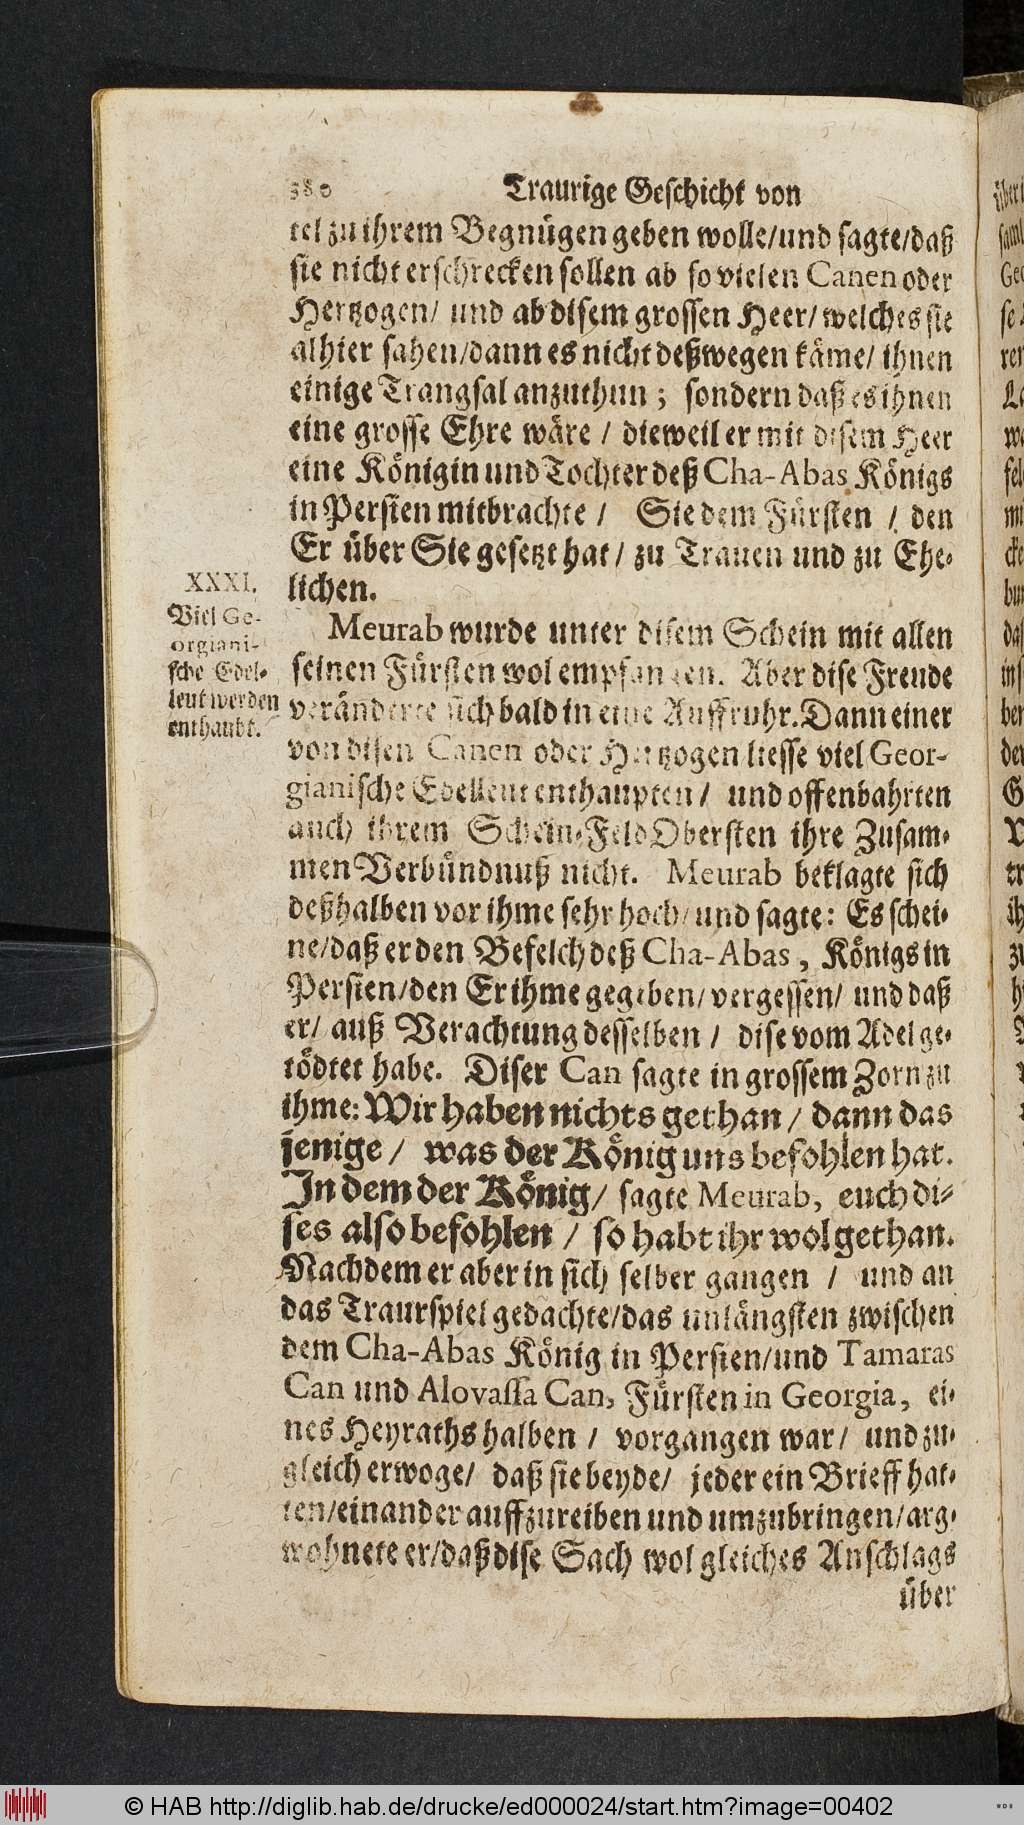 380 Traurige Geschicht von
tel zu ihrem Begnügen geben wolle/und sagte/daß
sie nicht erschrecken sollen ab so vielen Canen oder
Hertzogen/ und ab disem grossen Heer/ welches sie
alhier sahen/dann es nicht deßwegen käme/ ihnen
einige Trangsal anzuthun; sondern daß es ihnen
eine grosse Ehre wäre / dieweil er mit disem Heer
eine Königin und Tochter deß Cha-Abas Königs
in Persien mitbrachte / Sie dem Fürsten / den
Er über Sie gesetzt hat / zu Trauen und zu Ehe-
lichen.
XXXI.
Viel Ge-
orgiani-
sche Edel-
leut werden
enthaubt.
Meurab wurde unter disem Schein mit allen
seinen Fürsten wol empfangen. Aber dise Freude
veränderte sich bald in eine Auffruhr. Dann einer
von disen Canen oder Hertzogen liesse viel Geor-
gianische Edelleut enthaupten / und offenbahrten
auch ihrem Schein-Feld Obersten ihre Zusam-
men Verbündnuß nicht. Meurab beklagte sich
deßhalben vor ihme sehr hoch/ und sagte: Es schei-
ne/daß er den Befelch deß Cha-Abas, Königs in
Persien/den Er ihme gegeben/ vergessen/ und daß
er/ auß Verachtung desselben / dise vom Adel ge-
tödtet habe. Diser Can sagte in grossem Zorn zu
ihme: Wir haben nichts gethan / dann das
jenige / was der König uns befohlen hat.
In dem der König/ sagte Meurab, euch di-
ses also befohlen / so habt ihr wol gethan.
Nachdem er aber in sich selber gangen / und an
das Traurspiel gedachte/das unlängsten zwischen
dem Cha-Abas König in Persien/und Tamaras
Can und Alovassa Can, Fürsten in Georgia, ei-
nes Heyraths halben / vorgangen war/ und zu-
gleich erwoge/ daß sie beyde/ jeder ein Brieff hat-
ten/einander auffzureiben und umzubringen/arg-
wohnete er/daß dise Sach wol gleiches Anschlags
über
© HAB http://diglib.hab.de/drucke/ed000024/start.htm?image=00402